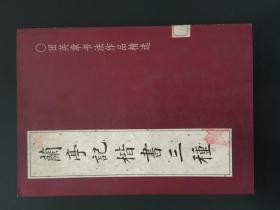 〇田英章书法作品精选
蘭亭記楷書三種